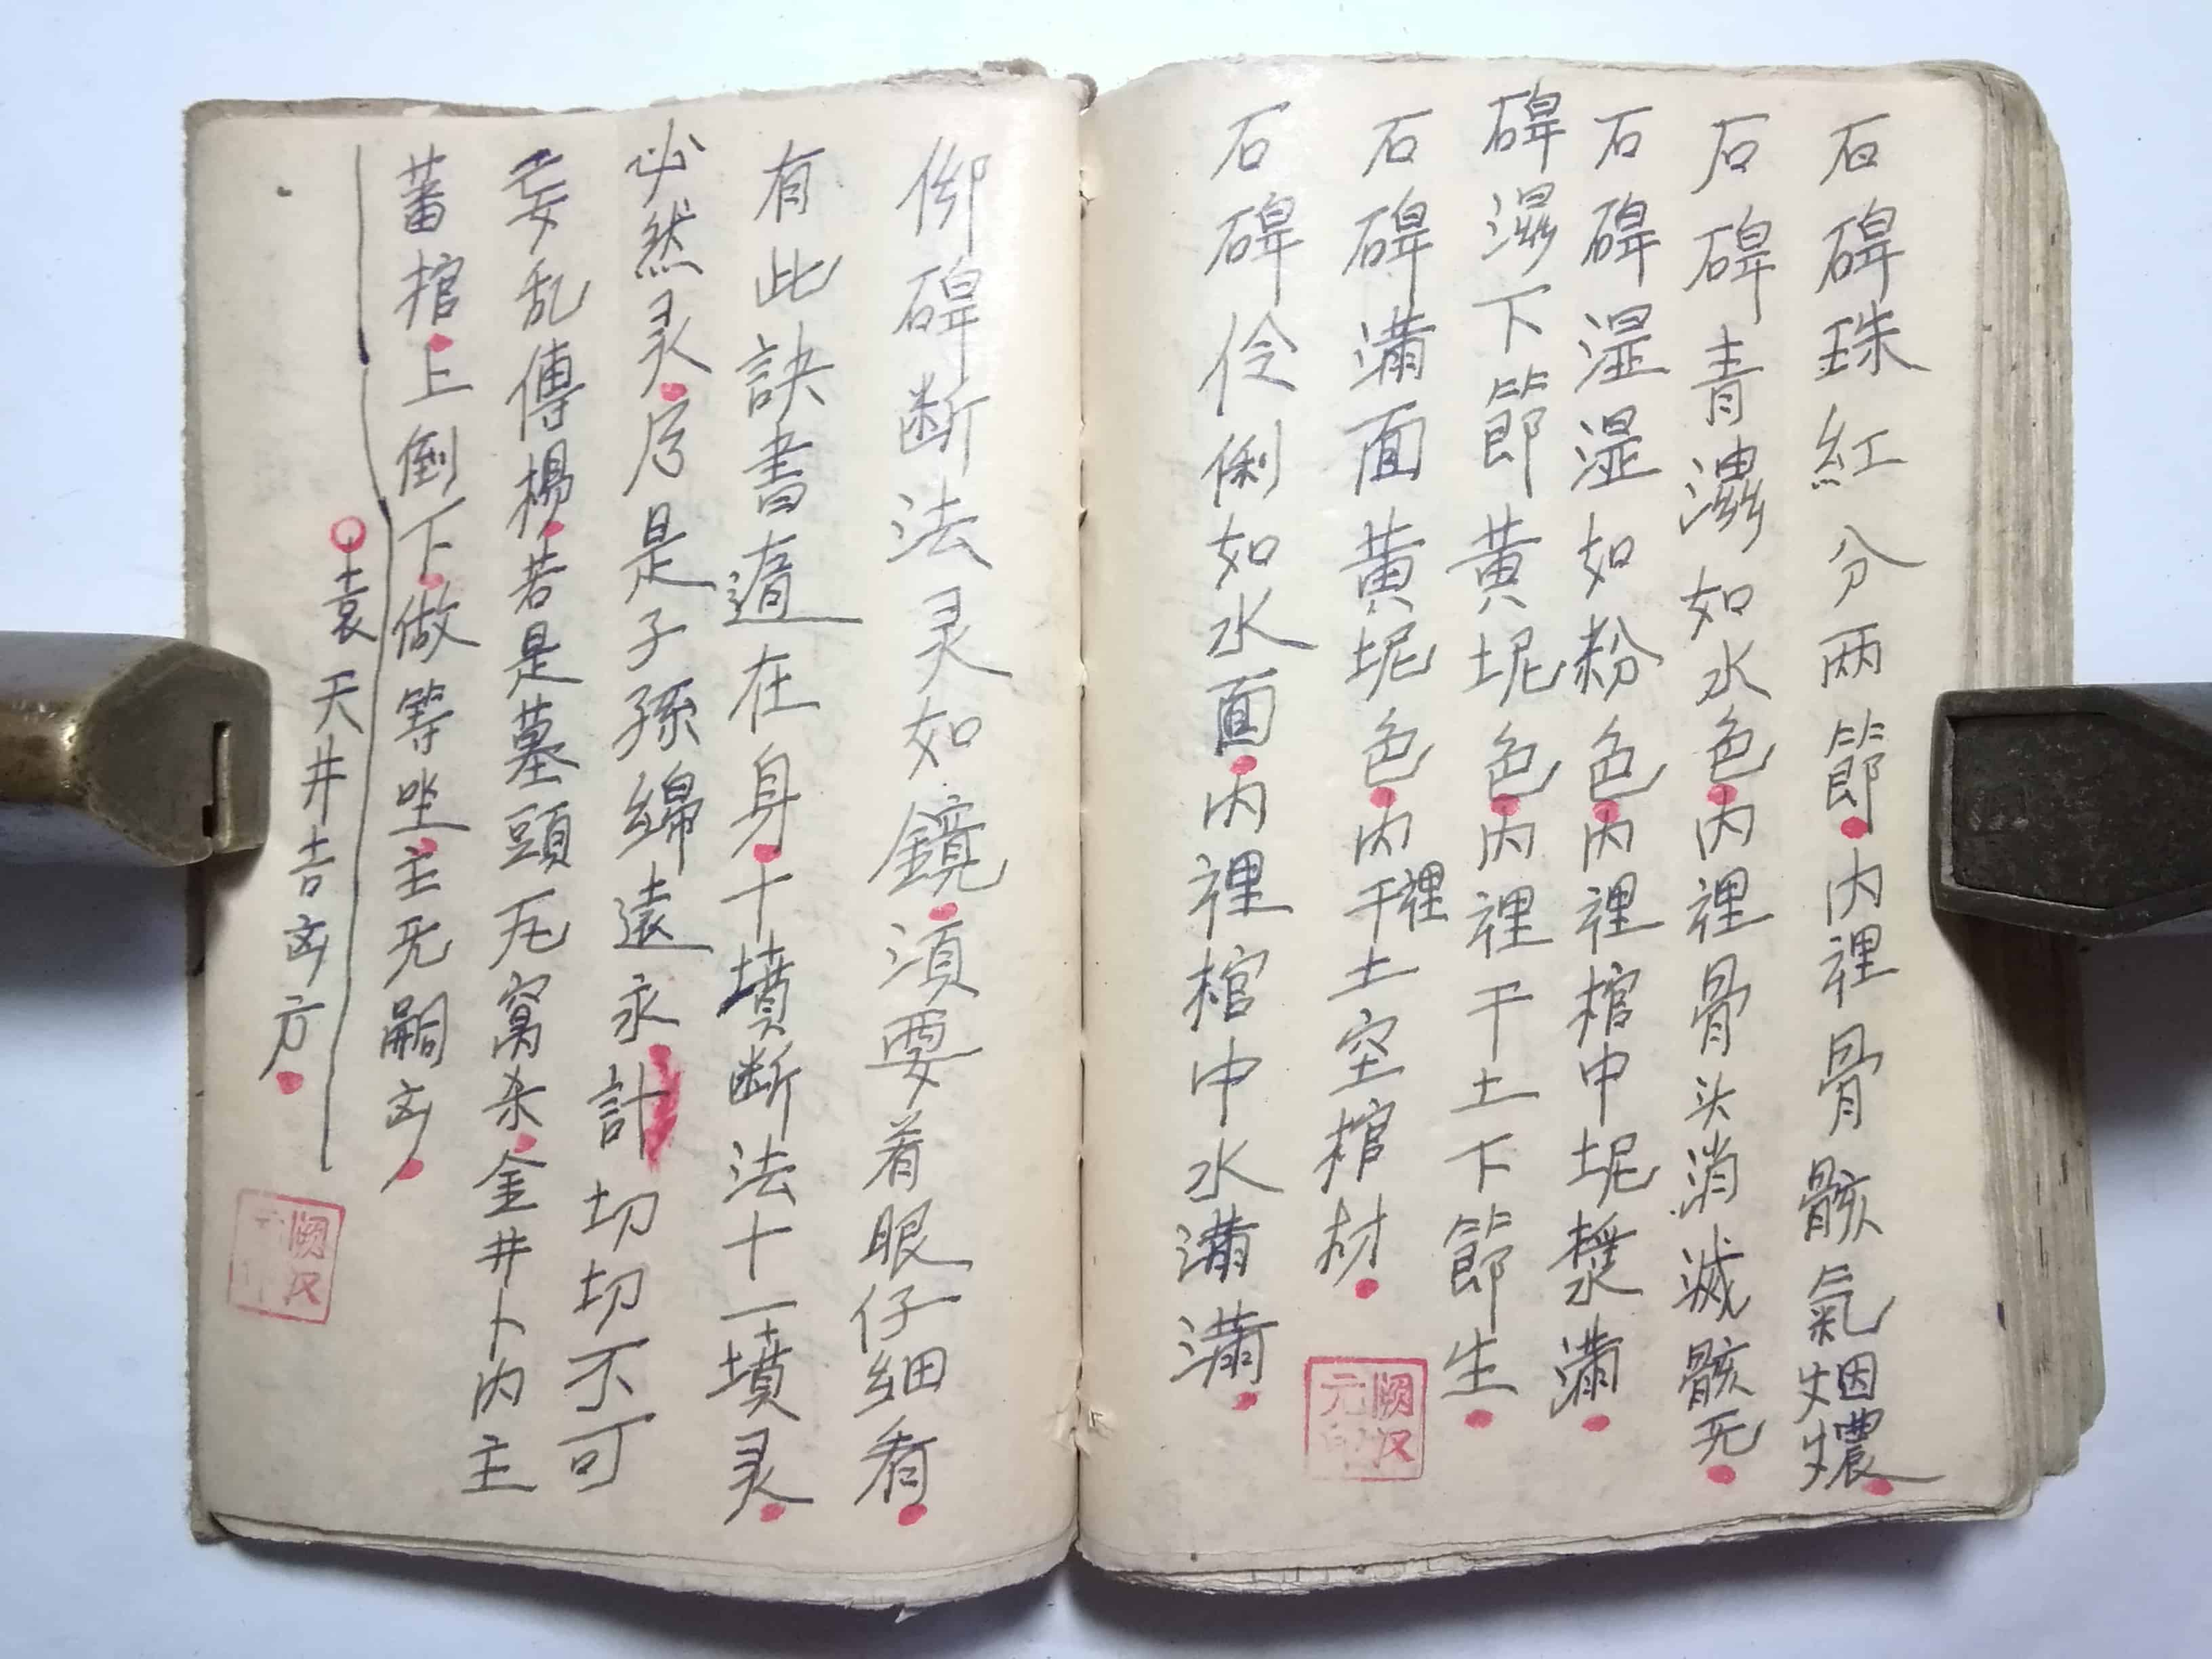 石碑珠紅分两節内裡骨骸氣烟燶
石碑青濕如水色内裡骨头消滅骸死
石碑湿湿如粉色内裡棺中坭漿滿
碑濕下節黃坭色内裡干土下節生
石碑滿面黃坭色内裡干土空棺材
石碑伶俐如水面内裡棺中水滿滿
阙汉元
御碑断法灵如鏡須要着眼仔細看
有此訣書随在身十墳断法十一墳灵
必然灵 是子孫綿遠永計切切不可
妄乱傳揚若是墓頭无窩杀金井卜内主
蕃棺上倒下做等坐主无嗣凶
袁天井吉凶方
阙汉